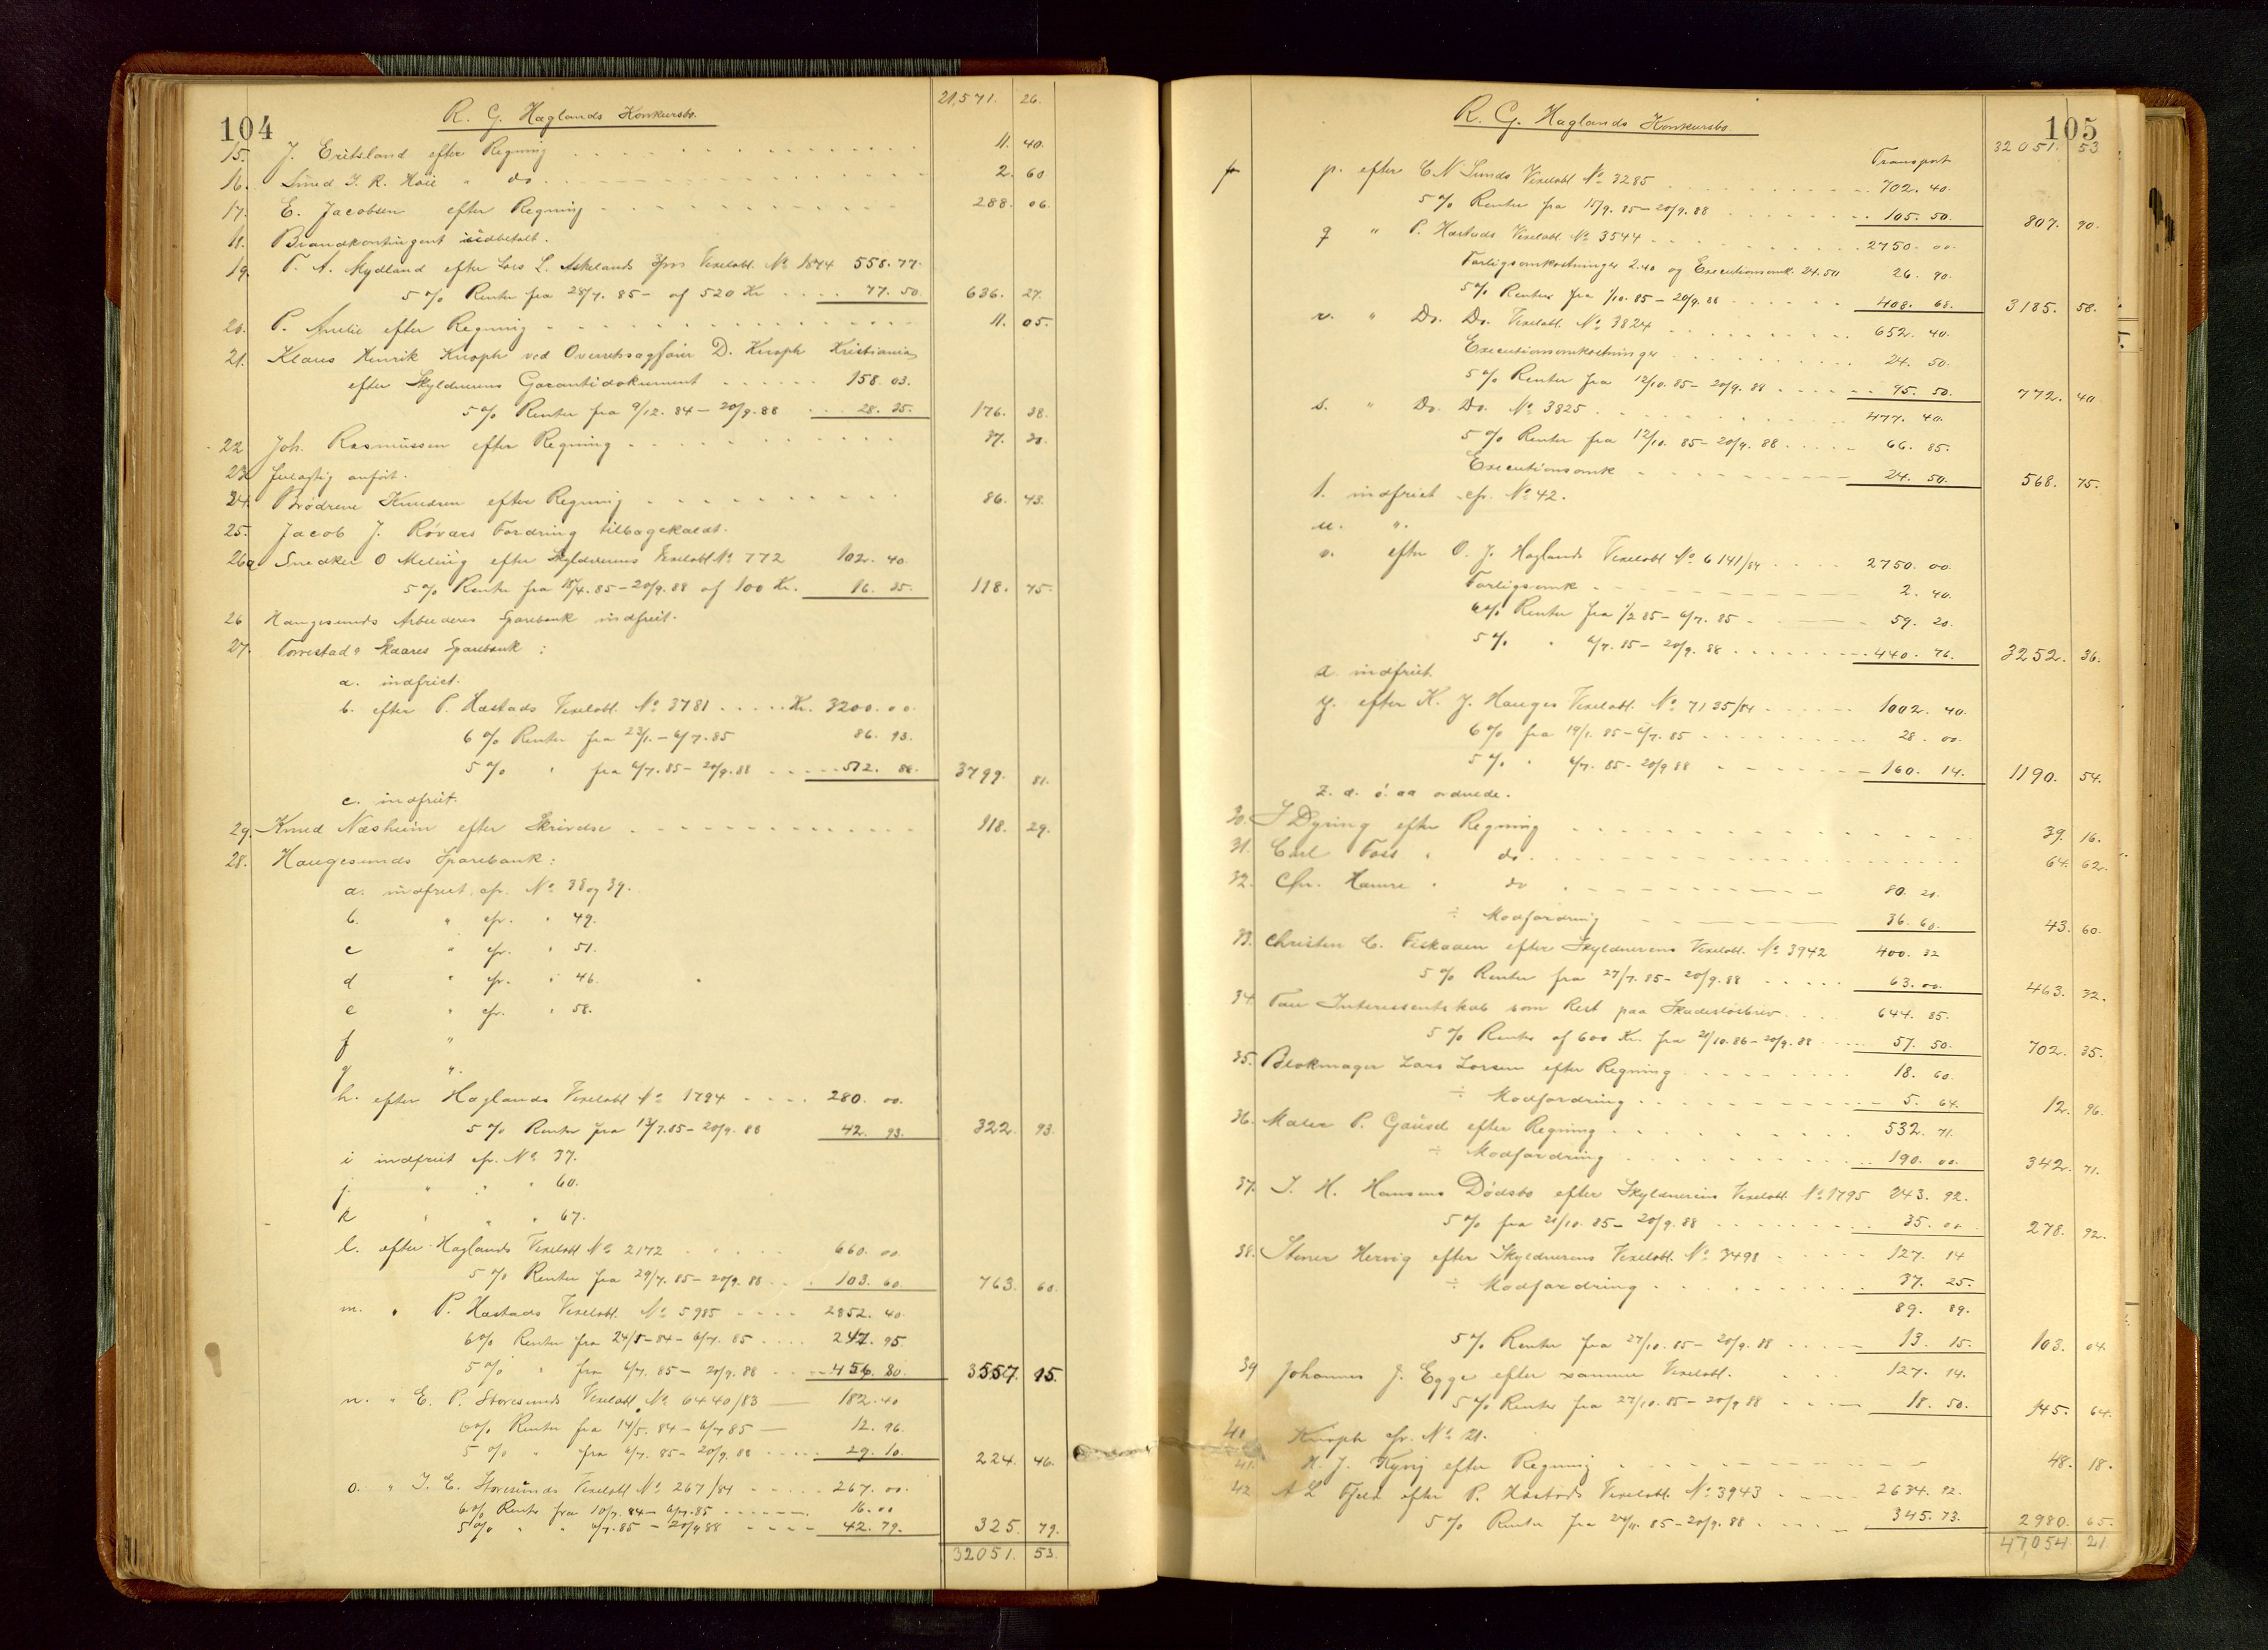 104
R. G. Haglands Konkursbo.
21,571. 26.
15. J. Eritsland efter Regning 11. 40.
16. Smed T. R. Hoie " do 2. 60
17. E. Jacobsen efter Regning 288. 06.
18. Brandkontingent udbetalt.
19. T. A. Mydland efter Lars L. Askelands 3/m Vexelobl. No 1874 558. 77.
5 % Renter fra 28/7. 85 - af 520 Kr 77. 50. 636. 27.
20. P. Amelie efter Regning 11. 05.
21. Klaus Henrik Knoph ved Overretssagfører D. Knoph Kristiania
efter Skyldnerens Garantidokument 158. 03.
5 % Renter fra 9/12. 84 - 20/9. 88 28. 35. 176. 38.
22 Joh. Rasmussen efter Regning 37. 30.
23 feilagtig anført.
24. Brødrene Knudsen efter Regning 86. 43.
25. Jacob J. Røværs Fordring tilbagekaldt.
26a Snedker O Meling efter Skyldnerens Vexelobl No 772 102. 40.
5 % Renter fra 18/4. 85 - 20/9. 88 af 100 Kr. 16. 35. 118. 75.
26 Haugesunds Arbeideres Sparebank indfriet.
27. Torvestad & Skaares Sparebank :
a. indfriet.
b. efter P. Hæstads Vexelobl. No 3781 Kr. 3200. 00.
6 % Renter fra 23/1. - 6/7. 85 86. 93.
5 % " fra 6/7. 85 - 20/9. 88 512. 88. 3799. 81.
c. indfriet.
29. Knud Næsheim efter Skrivelse 118. 29.
28. Haugesunds Sparebank :
a. indfriet cfr. No 38 og 39.
b. " cfr. " 49.
c " cfr. " 51.
d " cfr. " 46.
e " cfr. " 58.
f "
g "
h. efter Haglands Vexelobl No 1794 280. 00.
5 % Renter fra 13/7. 85 - 20/9. 88 42. 93. 322. 93.
i indfriet cfr. No 37.
j. " " " 60.
k " " " 67.
l. efter Haglands Vexelobl No 2172 660. 00.
5 % Renter fra 29/7. 85 - 20/9. 88 103. 60. 763. 60.
m. " P. Hæstads Vexelobl. No 5985 2852. 40.
6 % Renter fra 24/5 - 84 - 6/7. 85 247. 95.
5 % " fra 6/7. 85 - 20/9. 88 456. 80. 3557. 15.
n. " E. P. Storesunds Vexelobl. No 6440/83 182. 40
6 % Renter fra 14/5. 84 - 6/7 85 12. 96.
5 % " fra 6/7. 85 - 20/9. 88 29. 10. 224. 46.
o. " T. E. Storesunds Vexelobl No 267/84 267. 00.
6 % Renter fra 10/7. 84 - 6/7. 85 16. 00
5 % " " 6/7. 85 - 20/9 88 42. 79. 325. 79.
32051. 53.
105
R. G. Haglands Konkursbo.
Transport 32051. 53
p. efter C N Lunds Vexelobl No 3285 702. 40.
5 % Renter fra 15/9. 85 - 20/9. 88 105. 50. 807. 90.
q " P. Hæstads Vexelobl. No 3544 2750. 00.
Farligsomkostninger 2.40 og Executionsomk. 24.50 26. 90.
5 % Renter fra 1/10. 85 - 20/9. 88 408. 68. 3185. 58.
r. " Do. Do. Vexelobl. No 3824 652. 40.
Executionsomkostninger 24. 50.
5 % Renter fra 12/10. 85 - 20/9. 88 95. 50. 772. 40
s. " Do. Do. No 3825 477. 40.
5 % Renter fra 12/10. 85 - 20/9. 88 66. 85.
Executionsomk 24. 50. 568. 75.
t. indfriet cfr. No 42.
u. "
v. efter O. J. Haglands Vexelobl No 6141/84 2750. 00.
Farligsomk 2. 40.
6 % Renter fra 1/2 85 - 6/7. 85 59. 20.
5 % " 6/7. 85 - 20/9. 88 440. 76. 3252. 36.
x. indfriet.
y. efter K. J. Hauges Vexelobl. No 7135/84 1002. 40.
6 % fra 19/1. 85 - 6/7. 85 28. 00.
5 % " 6/7. 85 - 20/9 88 160. 14. 1190. 54.
z. æ. ø. aa ordnede.
30. I Dyring efter Regning 39. 16.
31. Carl Foss " do 64. 62.
32. Chr. Hamre " do 80. 20.
÷ Modfordring 36. 60. 43. 60.
33. Christen C. Fiskaaen efter Skyldnerens Vexelobl. No 3942 400. 32
5 % Renter fra 27/7. 85 - 20/9. 88 63. 00. 463. 32.
34. Tau Interessentskab som Rest paa Skadesløsbrev 644. 85.
5 % Renter af 600 Kr. fra 21/10. 86 - 20/9. 88 57. 50. 702. 35.
35. Blokmager Lars Larsen efter Regning 18. 60
÷ Modfordring 5. 64. 12. 96.
36. Maler P. Gausel efter Regning 532. 71.
÷ Modfordring 190. 00. 342. 71.
37. T. H. Hansens Dødsbo efter Skyldnerens Vexelobl. No 1795 243. 92.
5 % fra 21/10. 85 - 20/9. 88 35. 00. 278. 92.
38. Stener Hervig efter Skyldnerens Vexelobl. No 3498 127. 14
÷ Modfordring 37. 25.
89. 89.
5 % Renter fra 27/10. 85 - 20/9. 88 13. 15. 103. 04.
39 Johannes J. Egge efter samme Vexelobl. 127. 14.
5 % Renter fra 27/10. 85 - 20/9 88 18. 50. 145. 64.
Knoph cfr. No 21.
41. H. J. Kyvig efter Regning 48. 18.
42 A L Fjeld efter P. Hæstads Vexelobl. No 3943 2634. 92.
5 % Renter fra 24/11. 85 - 20/9. 88 345. 73. 2980. 65.
47,054 21